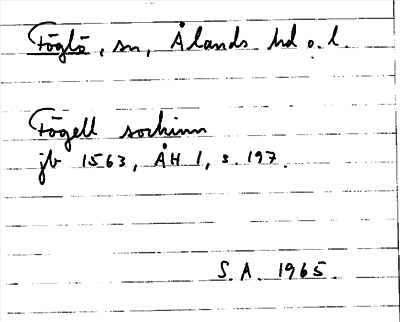 Föglö, sn, Ålands hd o. l.
Fögell sockinn
jb 1563, ÅH 1, s. 197.
S. A. 1965.